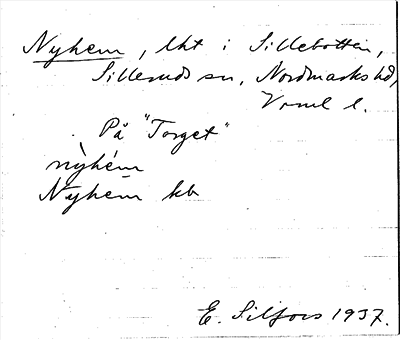 Nyhem, lht i Sillebotten,
Sillerud sn, Nordmarks hd,
Vrml l.
På "Torget"
nỳhém
Nyhem kb
E. Silfors 1937.